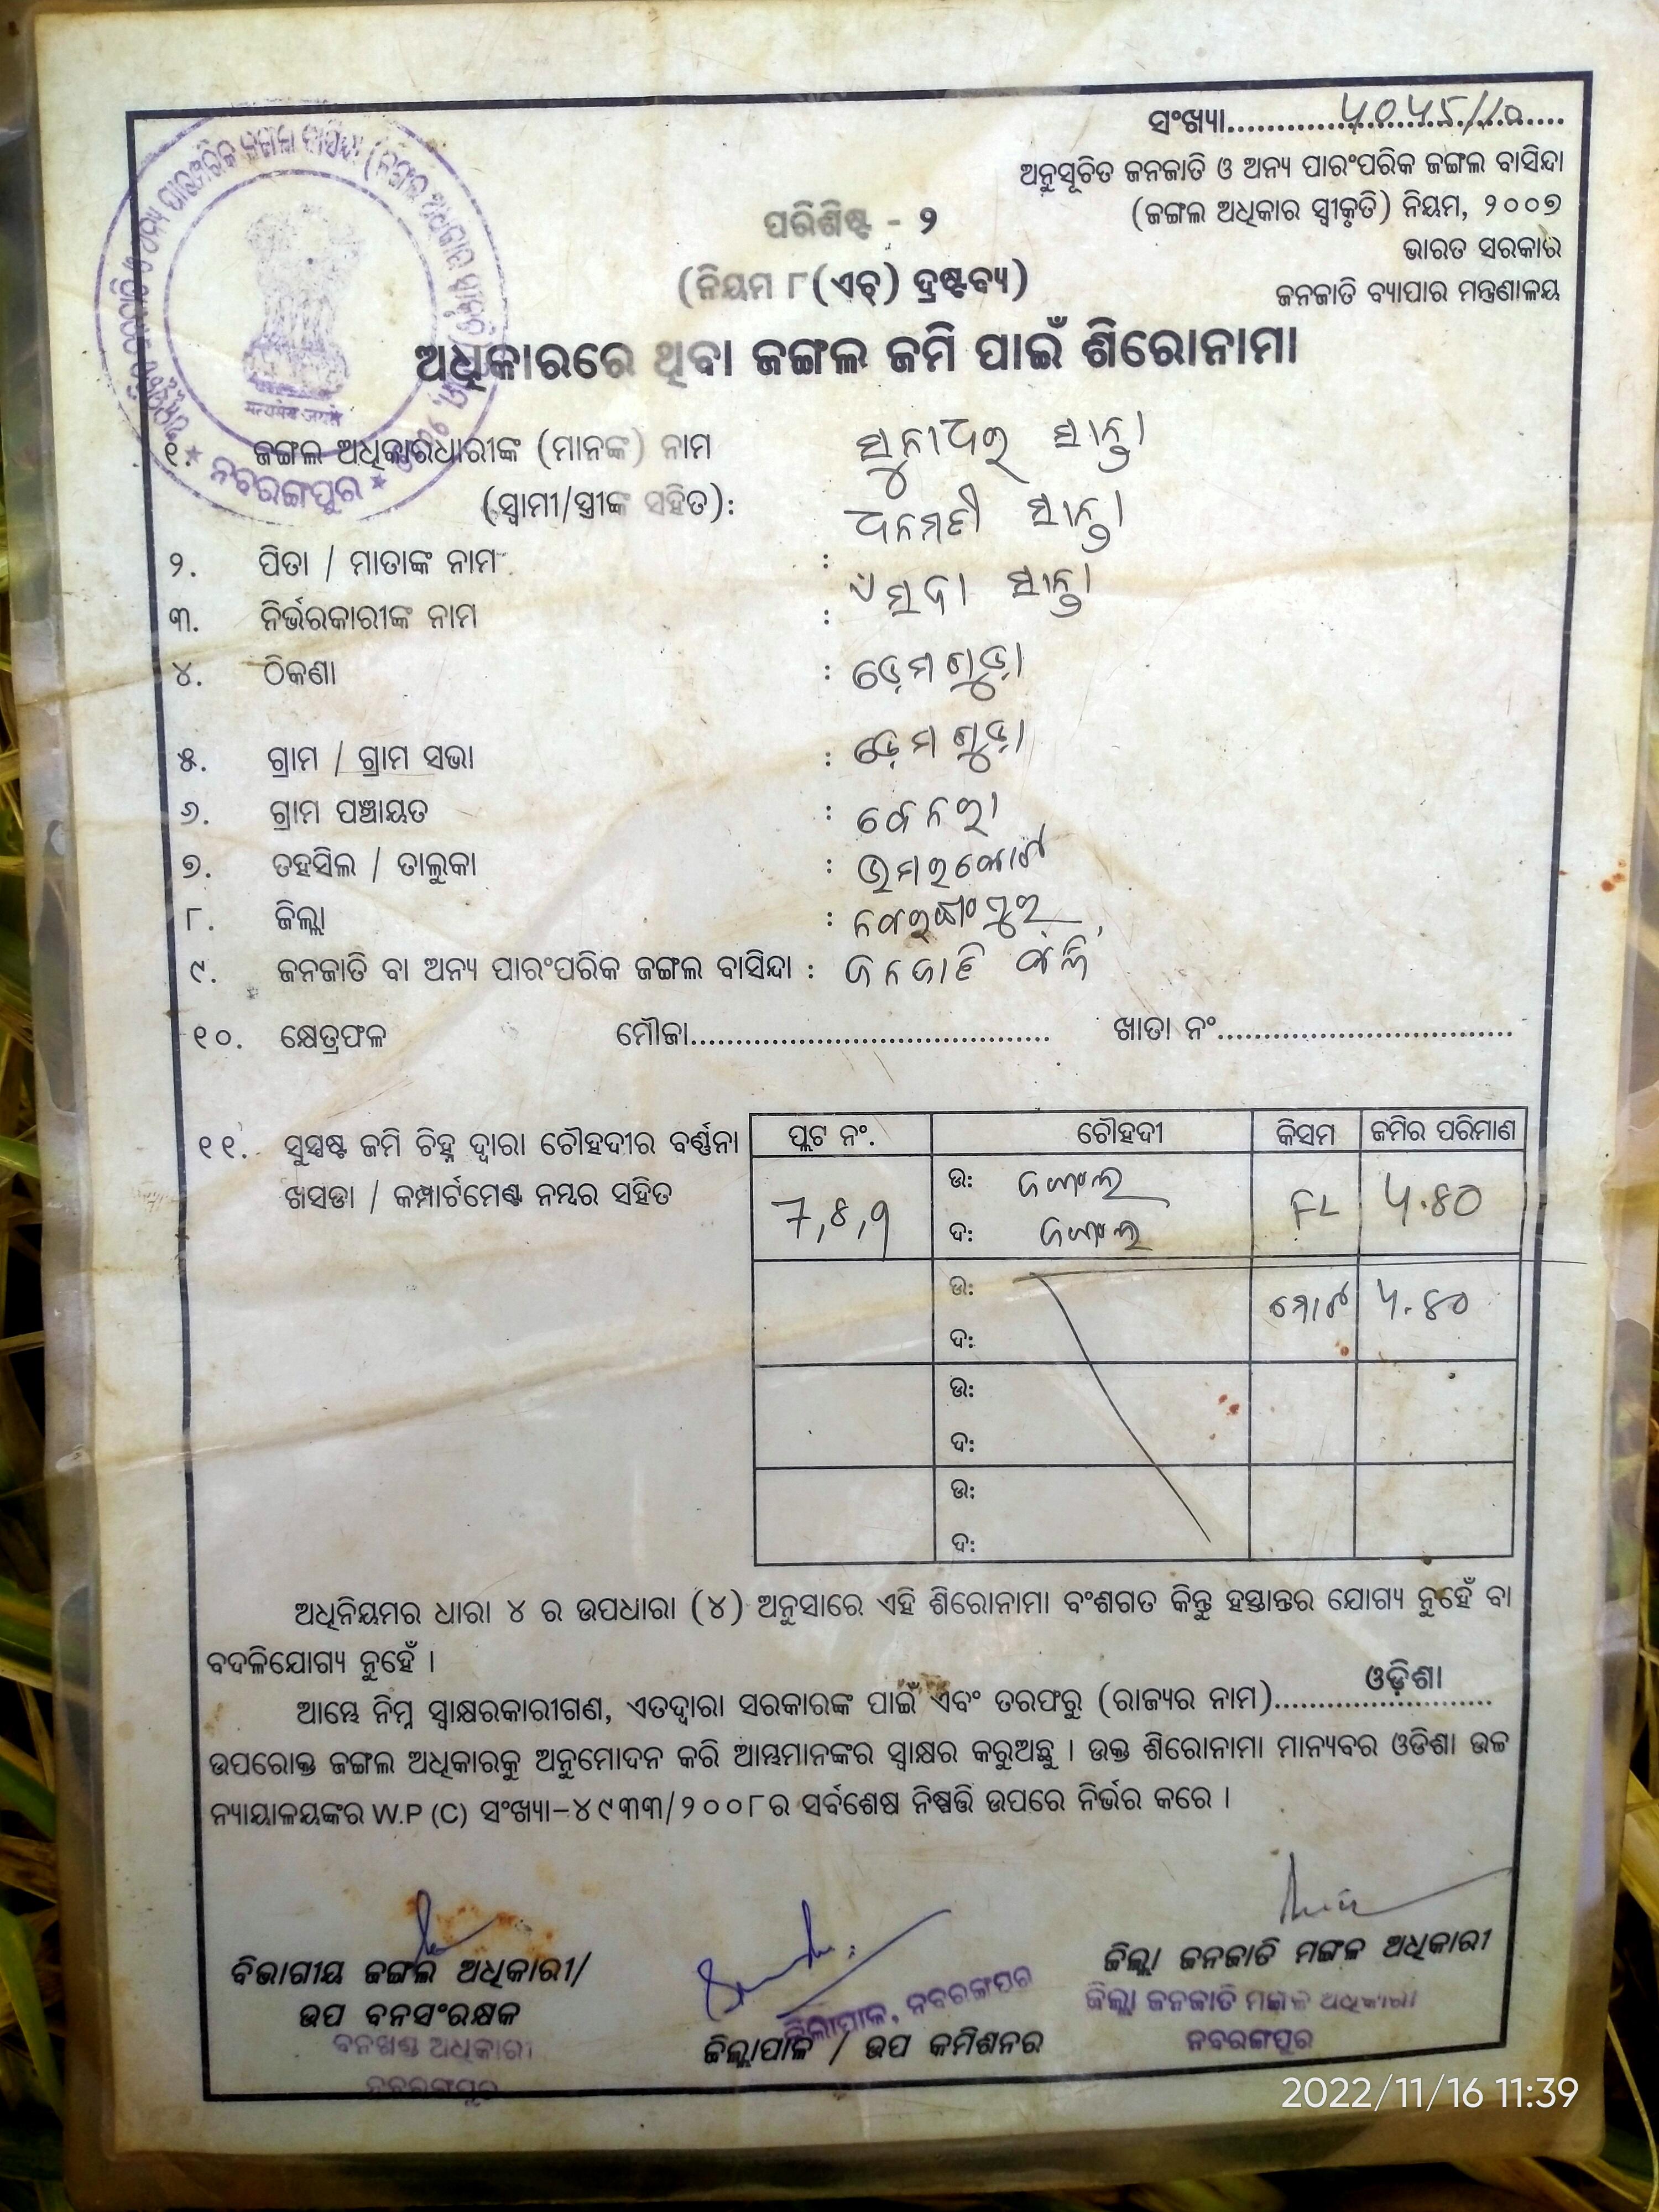 ସଂଖ୍ୟା
ଅନୁସୂଚିତ ଜନଜାତି ଓ ଅନ୍ୟ ପାରଂପରିକ ଜଙ୍ଗଲ ବାସିନ୍ଦା
(ଜଙ୍ଗଲ ଅଧିକାର ସ୍ୱୀକୃତି) ନିୟମ, ୨୦୦୭
ଭାରତ ସରକାର
ଜନଜାତି ବ୍ୟାପାର ମନ୍ତ୍ରଣାଳୟ
ପରିଶିଷ୍ଟ - ୨
(ନିୟମ ୮(ଏଚ୍) ଦ୍ରଷ୍ଟବ୍ୟ)
ଅଧିକାରରେ ଥିବା ଜଙ୍ଗଲ ଜମି ପାଇଁ ଶିରୋନାମା
ନବରଙ୍ଗପୁର
୧. ଜଙ୍ଗଲ ଅଧିକାରଧାରୀଙ୍କ (ମାନଙ୍କ) ନାମ ସାନ୍ତା
(ସ୍ୱାମୀ/ସ୍ତ୍ରୀଙ୍କ ସହିତ): ଧନମତୀ ସାନ୍ତା
୨. ପିତା / ମାତାଙ୍କ ନାମ : ସାନ୍ତା
୩. ନିର୍ଭରକାରୀଙ୍କ ନାମ :
୪. ଠିକଣା : ଡେମଗୁଡ଼ା
୫. ଗ୍ରାମ / ଗ୍ରାମ ସଭା : ଡେମଗୁଡ଼ା
୬. ଗ୍ରାମ ପଞ୍ଚାୟତ :
୭. ତହସିଲ / ତାଲୁକା : ଉମରକୋଟ
୮. ଜିଲ୍ଲା : ନବରଙ୍ଗପୁର
୯. ଜନଜାତି ବା ଅନ୍ୟ ପାରଂପରିକ ଜଙ୍ଗଲ ବାସିନ୍ଦା : ଜନଜାତି
୧୦. କ୍ଷେତ୍ରଫଳ ମୌଜା ଖାତା ନଂ
୧୧. ସୁସ୍ପଷ୍ଟ ଜମି ଚିହ୍ନ ଦ୍ୱାରା ଚୌହଦୀର ବର୍ଣ୍ଣନା
ଖସଡା / କମ୍ପାର୍ଟମେଣ୍ଟ ନମ୍ବର ସହିତ
ପ୍ଲଟ ନଂ. ଚୌହଦୀ କିସମ ଜମିର ପରିମାଣ
ଉ: ଜଙ୍ଗଲ FL
ଦ: ଜଙ୍ଗଲ
ଉ: ମୋଟ
ଦ:
ଉ:
ଦ:
ଉ:
ଦ:
ଅଧିନିୟମର ଧାରା ୪ ର ଉପଧାରା (୪) ଅନୁସାରେ ଏହି ଶିରୋନାମା ବଂଶଗତ କିନ୍ତୁ ହସ୍ତାନ୍ତର ଯୋଗ୍ୟ ନୁହେଁ ବା
ବଦଳିଯୋଗ୍ୟ ନୁହେଁ ।
ଆମ୍ଭେ ନିମ୍ନ ସ୍ୱାକ୍ଷରକାରୀଗଣ, ଏତଦ୍ୱାରା ସରକାରଙ୍କ ପାଇଁ ଏବଂ ତରଫରୁ (ରାଜ୍ୟର ନାମ) ଓଡ଼ିଶା
ଉପରୋକ୍ତ ଜଙ୍ଗଲ ଅଧିକାରକୁ ଅନୁମୋଦନ କରି ଆମ୍ଭମାନଙ୍କର ସ୍ୱାକ୍ଷର କରୁଅଛୁ । ଉକ୍ତ ଶିରୋନାମା ମାନ୍ୟବର ଓଡିଶା ଉଚ୍ଚ
ନ୍ୟାୟାଳୟଙ୍କର W.P (C) ସଂଖ୍ୟା-୪୯୩୩/୨୦୦୮ର ସର୍ବଶେଷ ନିଷ୍ପତ୍ତି ଉପରେ ନିର୍ଭର କରେ ।
ବିଭାଗୀୟ ଜଙ୍ଗଲ ଅଧିକାରୀ/
ଉପ ବନସଂରକ୍ଷକ
ବନଖଣ୍ଡ ଅଧିକାରୀ
ନବରଙ୍ଗପୁର
ଜିଲ୍ଲାପାଳ, ନବରଙ୍ଗପୁର
ଜିଲ୍ଲାପାଳ / ଉପ କମିଶନର
ଜିଲ୍ଲା ଜନଜାତି ମଙ୍ଗଳ ଅଧିକାରୀ
ଜିଲ୍ଲା ଜନଜାତି ମଙ୍ଗଳ ଅଧିକାରୀ
ନବରଙ୍ଗପୁର
2022/11/16 11:39